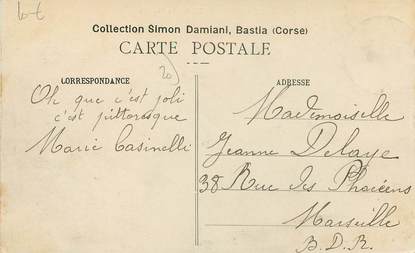 Collection Simon Damiani, Bastia (Corse)
CARTE POSTALE
20
CORRESPONDANCE
Oh que c'est joli
c'est pittoresque
Marie Casinelli
ADRESSE
Mademoiselle
Jeanne Delaye
38 Rue des Phocéens
Marseille
B.D.R.